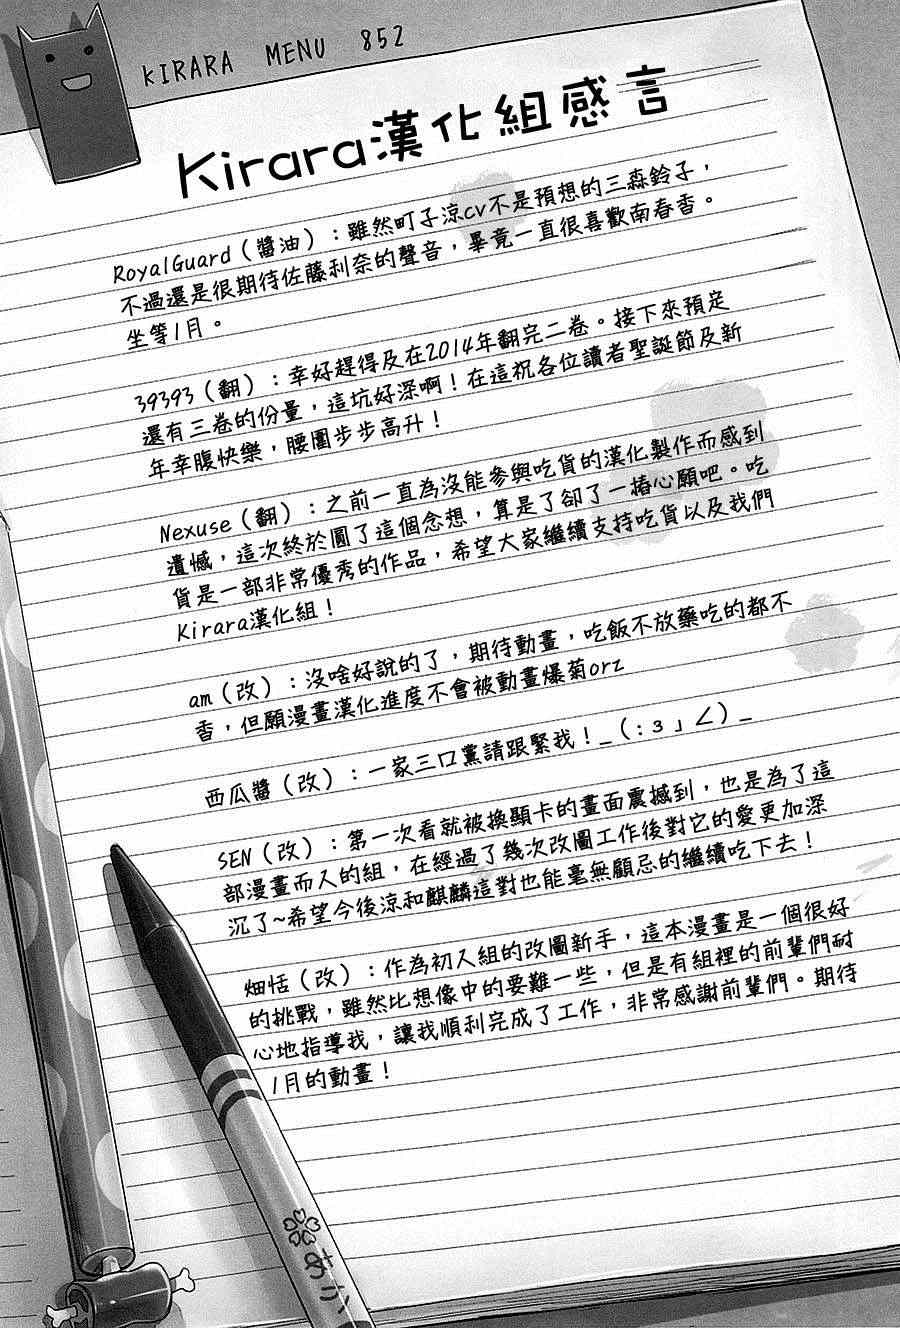 KIRARA MENU 852
Kirara漢化組感言
RoyalGuard（醬油）：雖然町子涼cv不是預想的三森鈴子，
不過還是很期待佐藤利奈的聲音，畢竟一直很喜歡南春香。
坐等1月。
39393（翻）：幸好趕得及在2014年翻完二卷。接下來預定
還有三卷的份量，這坑好深啊！在這祝各位讀者聖誕節及新
年幸腹快樂，腰圍步步高升！
Nexuse（翻）：之前一直為沒能參與吃貨的漢化製作而感到
遺憾，這次終於圓了這個念想，算是了卻了一樁心願吧。吃
貨是一部非常優秀的作品，希望大家繼續支持吃貨以及我們
Kirara漢化組！
am（改）：沒啥好說的了，期待動畫，吃飯不放藥吃的都不
香，但願漫畫漢化進度不會被動畫爆菊orz
西瓜醬（改）：一家三口黨請跟緊我！_（:3」∠）_
SEN（改）：第一次看就被換顯卡的畫面震撼到，也是為了這
部漫畫而入的組，在經過了幾次改圖工作後對它的愛更加深
沉了~希望今後涼和麒麟這對也能毫無顧忌的繼續吃下去！
畑恬（改）：作為初入組的改圖新手，這本漫畫是一個很好
的挑戰，雖然比想像中的要難一些，但是有組裡的前輩們耐
心地指導我，讓我順利完成了工作，非常感謝前輩們。期待
1月的動畫！
あり